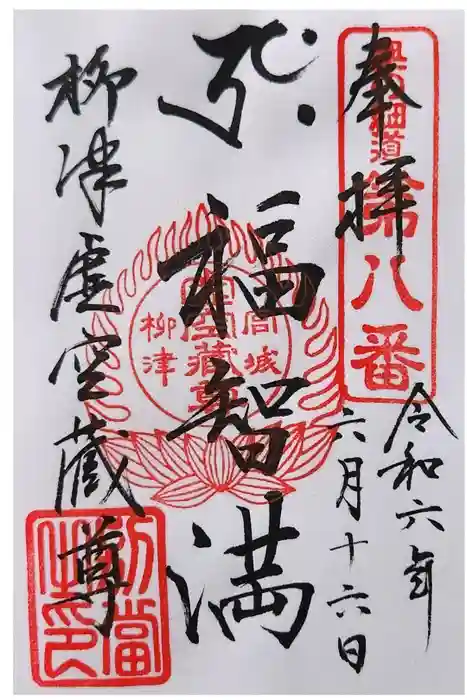 奉拝
奥の細道
第八番
令和六年
六月十六日
福智満
宮城
虚空蔵尊
柳津
柳津虚空蔵尊